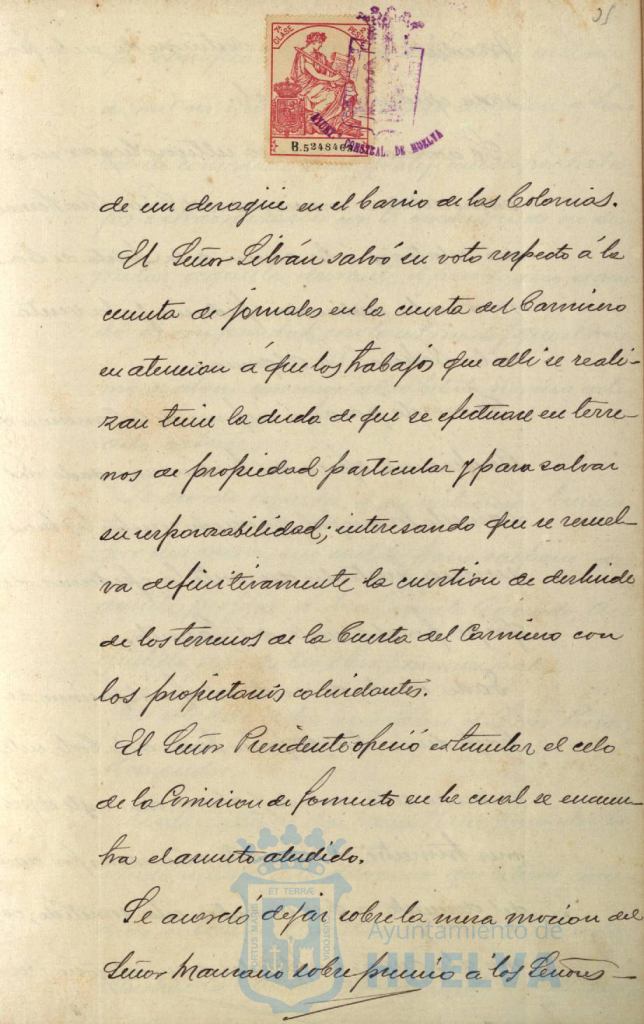 25
7ª CLASE PESE
B.5248464
AYUNT. CONSTCAL. DE HUELVA
de un desagüe en el barrio de las Colonias.
El Señor Silván salvó su voto respecto á la
cuenta de jornales en la cuesta del Carnicero
en atencion á que los trabajos que alli se reali-
zan tiene la duda de que se efectuase en terre-
nos de propiedad particular y para salvar
su responsabilidad; interesando que se resuel-
va definitivamente la cuestion de deslinde
de los terrenos de la Cuesta del Carnicero con
los propietarios colindantes.
El Señor Presidente ofreció estimular el celo
de la Comision de fomento en la cual se encuen-
tra el asunto aludido.
Se acordó dejar sobre la mesa mocion del
Señor Manzano sobre premio a los Señores
ET TERRÆ
PORTUS MARIS
CUSTODIA
Ayuntamiento de
HUELVA